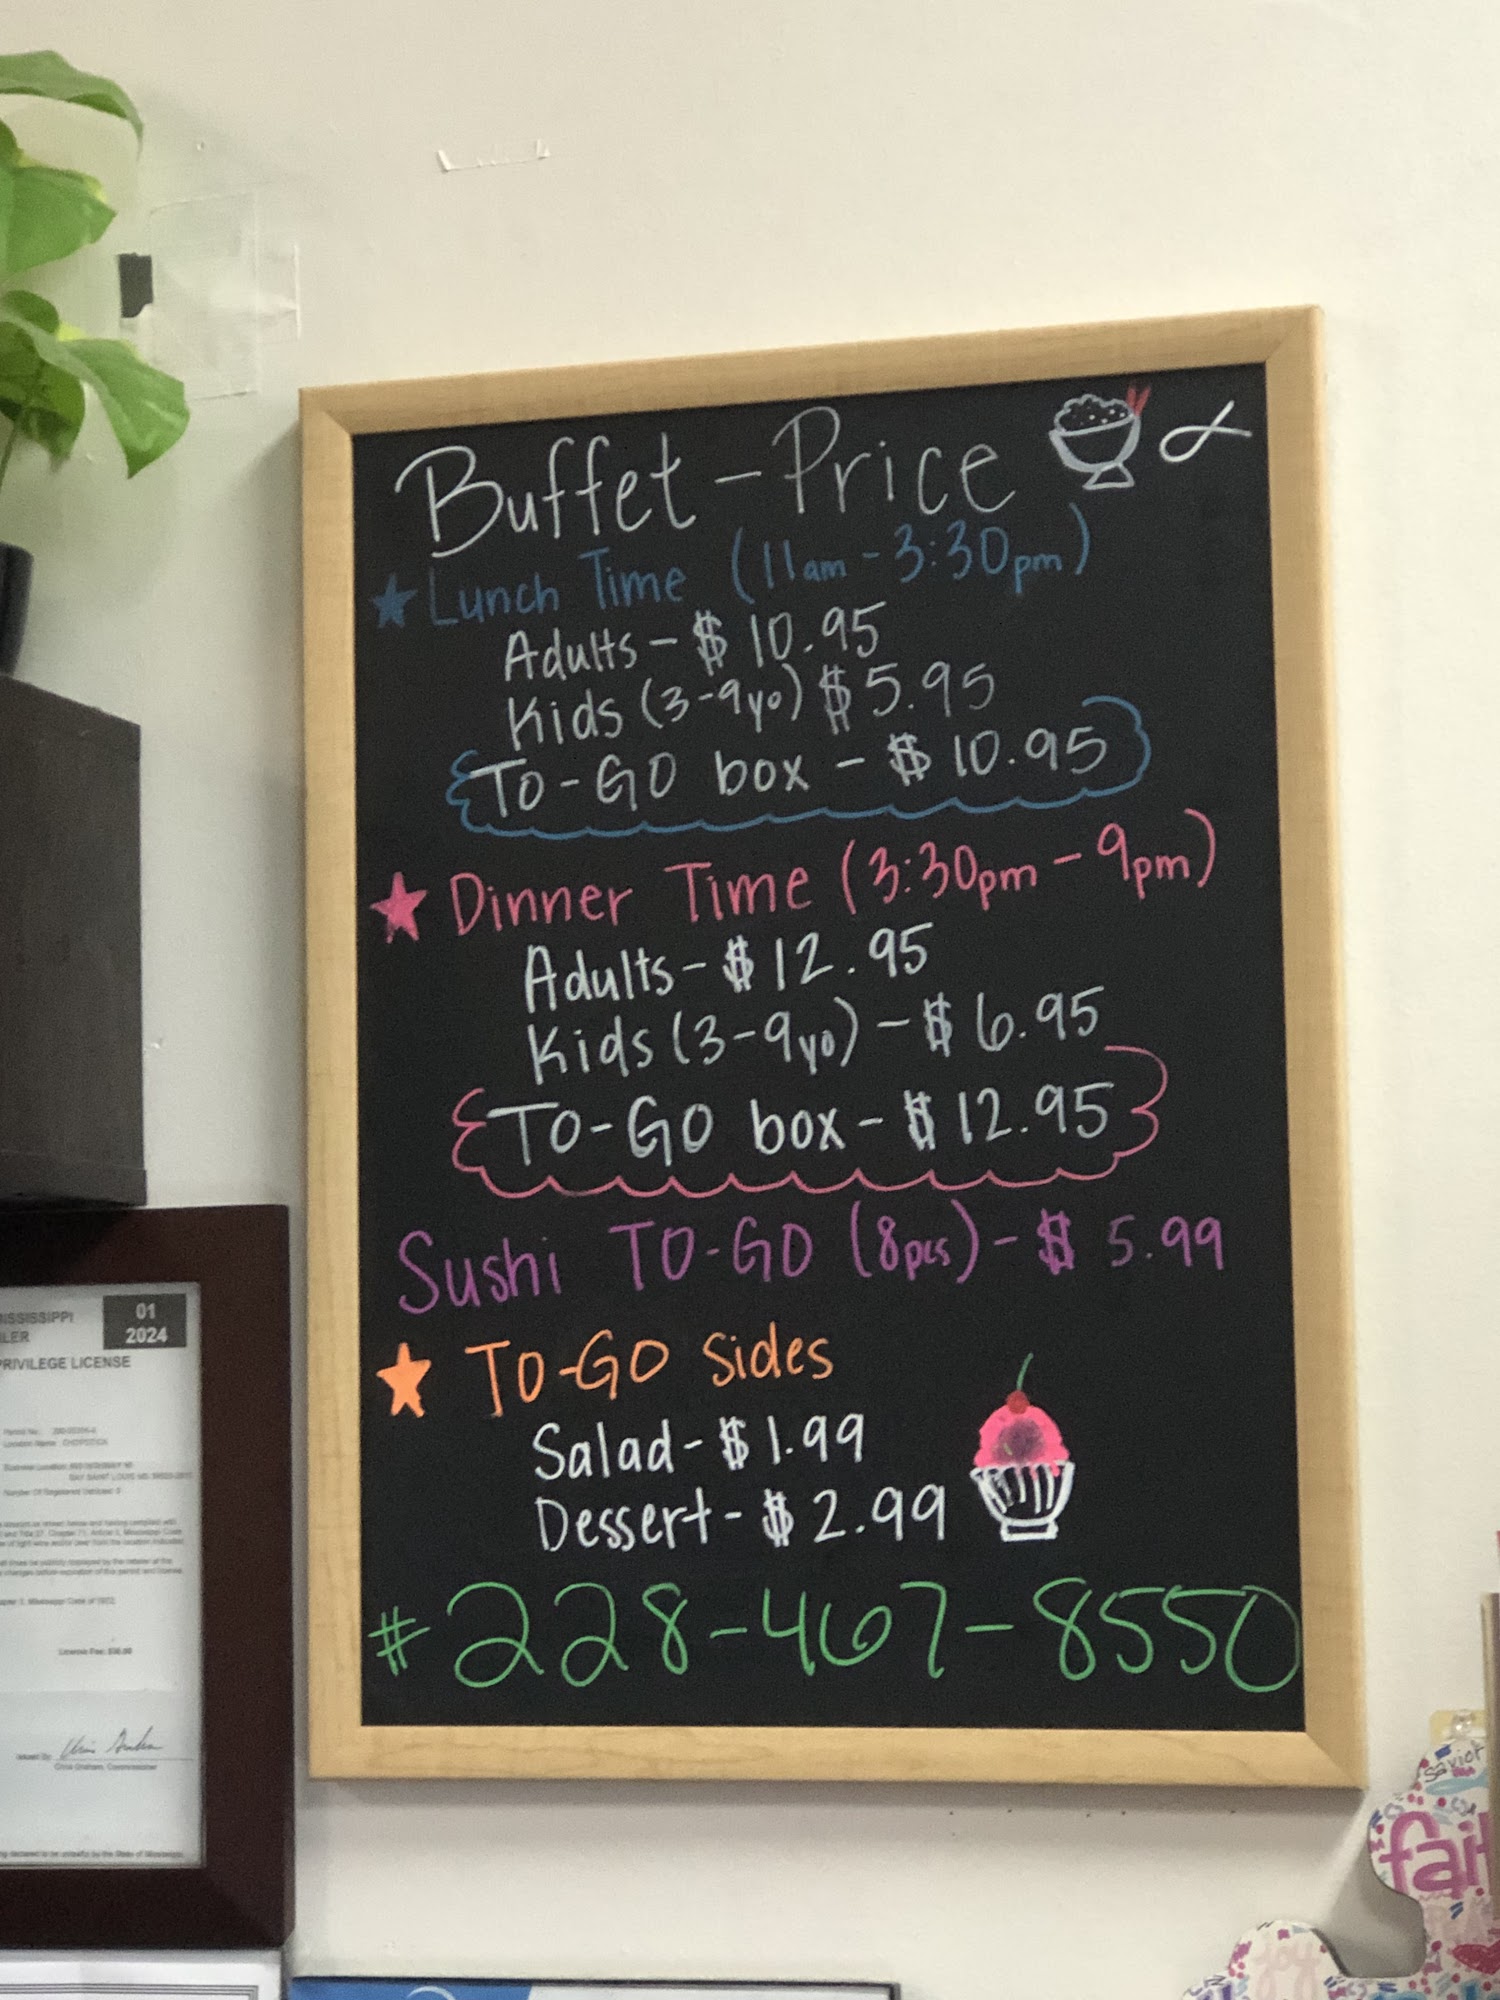 Buffet - Price
Lunch Time (11am - 3:30pm)
Adults - $10.95
Kids (3-9yo) $5.95
TO-GO box - $10.95
Dinner Time (3:30pm - 9pm)
Adults - $12.95
Kids (3-9yo) - $6.95
TO-GO box - $12.95
Sushi TO-GO (8pcs) - $5.99
TO-GO sides
Salad - $1.99
Dessert - $2.99
# 228-467-8550
01
2024
PRIVILEGE LICENSE
Savior
joy